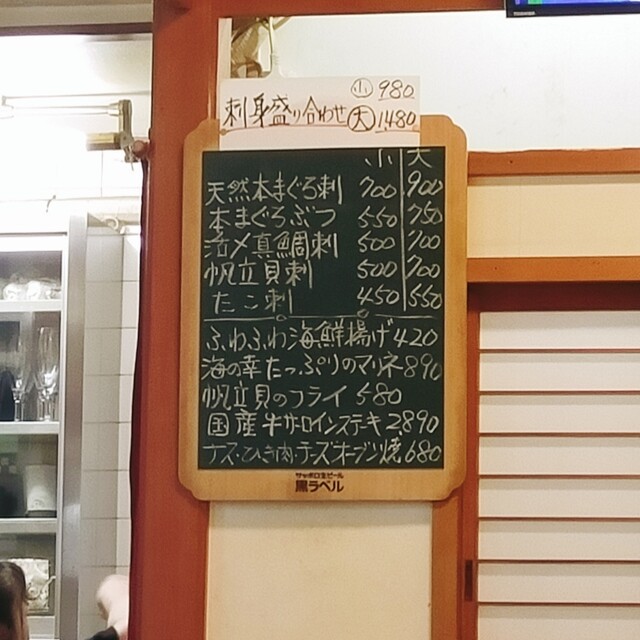 TOSHIBA
刺身盛り合わせ 小 980
大 1,480
小 大
天然本まぐろ刺 700 900
本まぐろぶつ 550 750
活〆真鯛刺 500 700
帆立貝刺 500 700
たこ刺 450 550
ふわふわ海鮮揚げ 420
海の幸たっぷりのマリネ 890
帆立貝のフライ 580
国産牛サーロインステキ 2890
ナス・ひき肉・チーズオーブン焼 680
サッポロ生ビール
黒ラベル